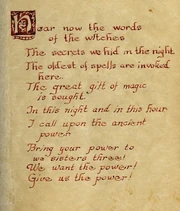 Hear now the words
of the witches
The secrets we hid in the night.
The oldest of spells are invoked
here.
The great gift of magic
is sought.
In this night and in this hour
I call upon the ancient
power
Bring your power to
we sisters three!
We want the power!
Give us the power!